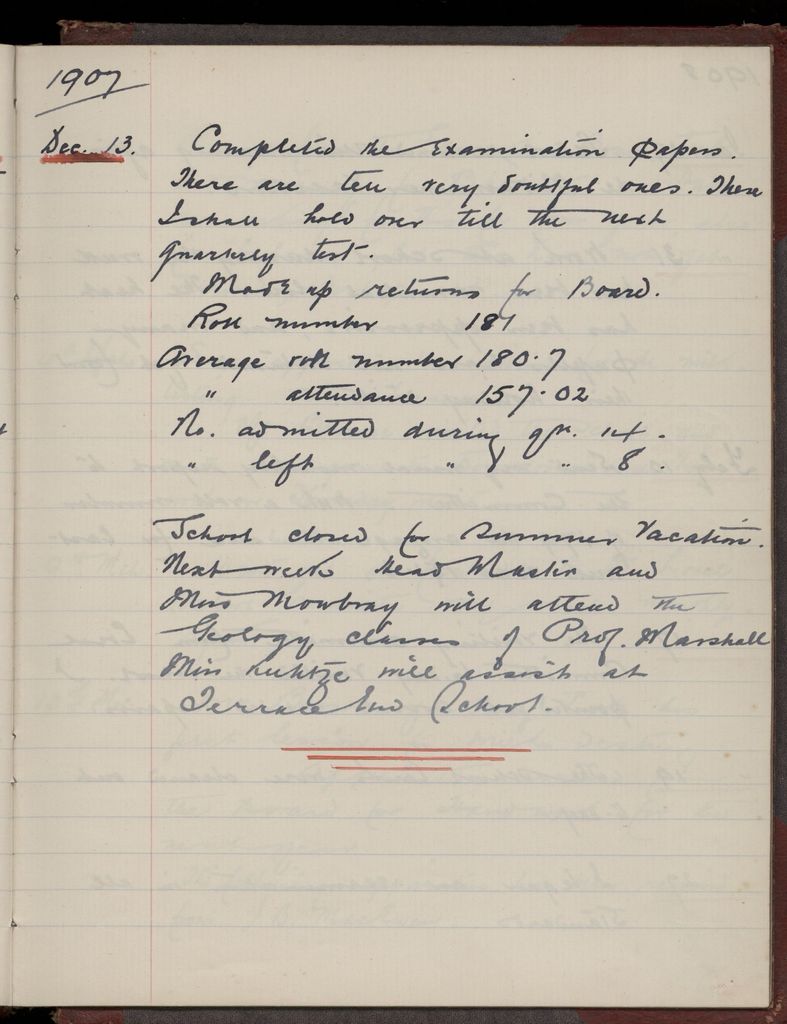 1907
Dec. 13. Completed the Examination Papers.
There are ten very doubtful ones. These
I shall hold over till the next
quarterly test.
Made up returns for Board.
Roll number 181
Average roll number 180.7
" attendance 157.02
No. admitted during qr. 14.
" left " " 8.
School closed for Summer Vacation.
Next week Head Master and
Miss Mowbray will attend the
Geology classes of Prof. Marshall
Miss Kuhtze will assist at
Terrace End School.